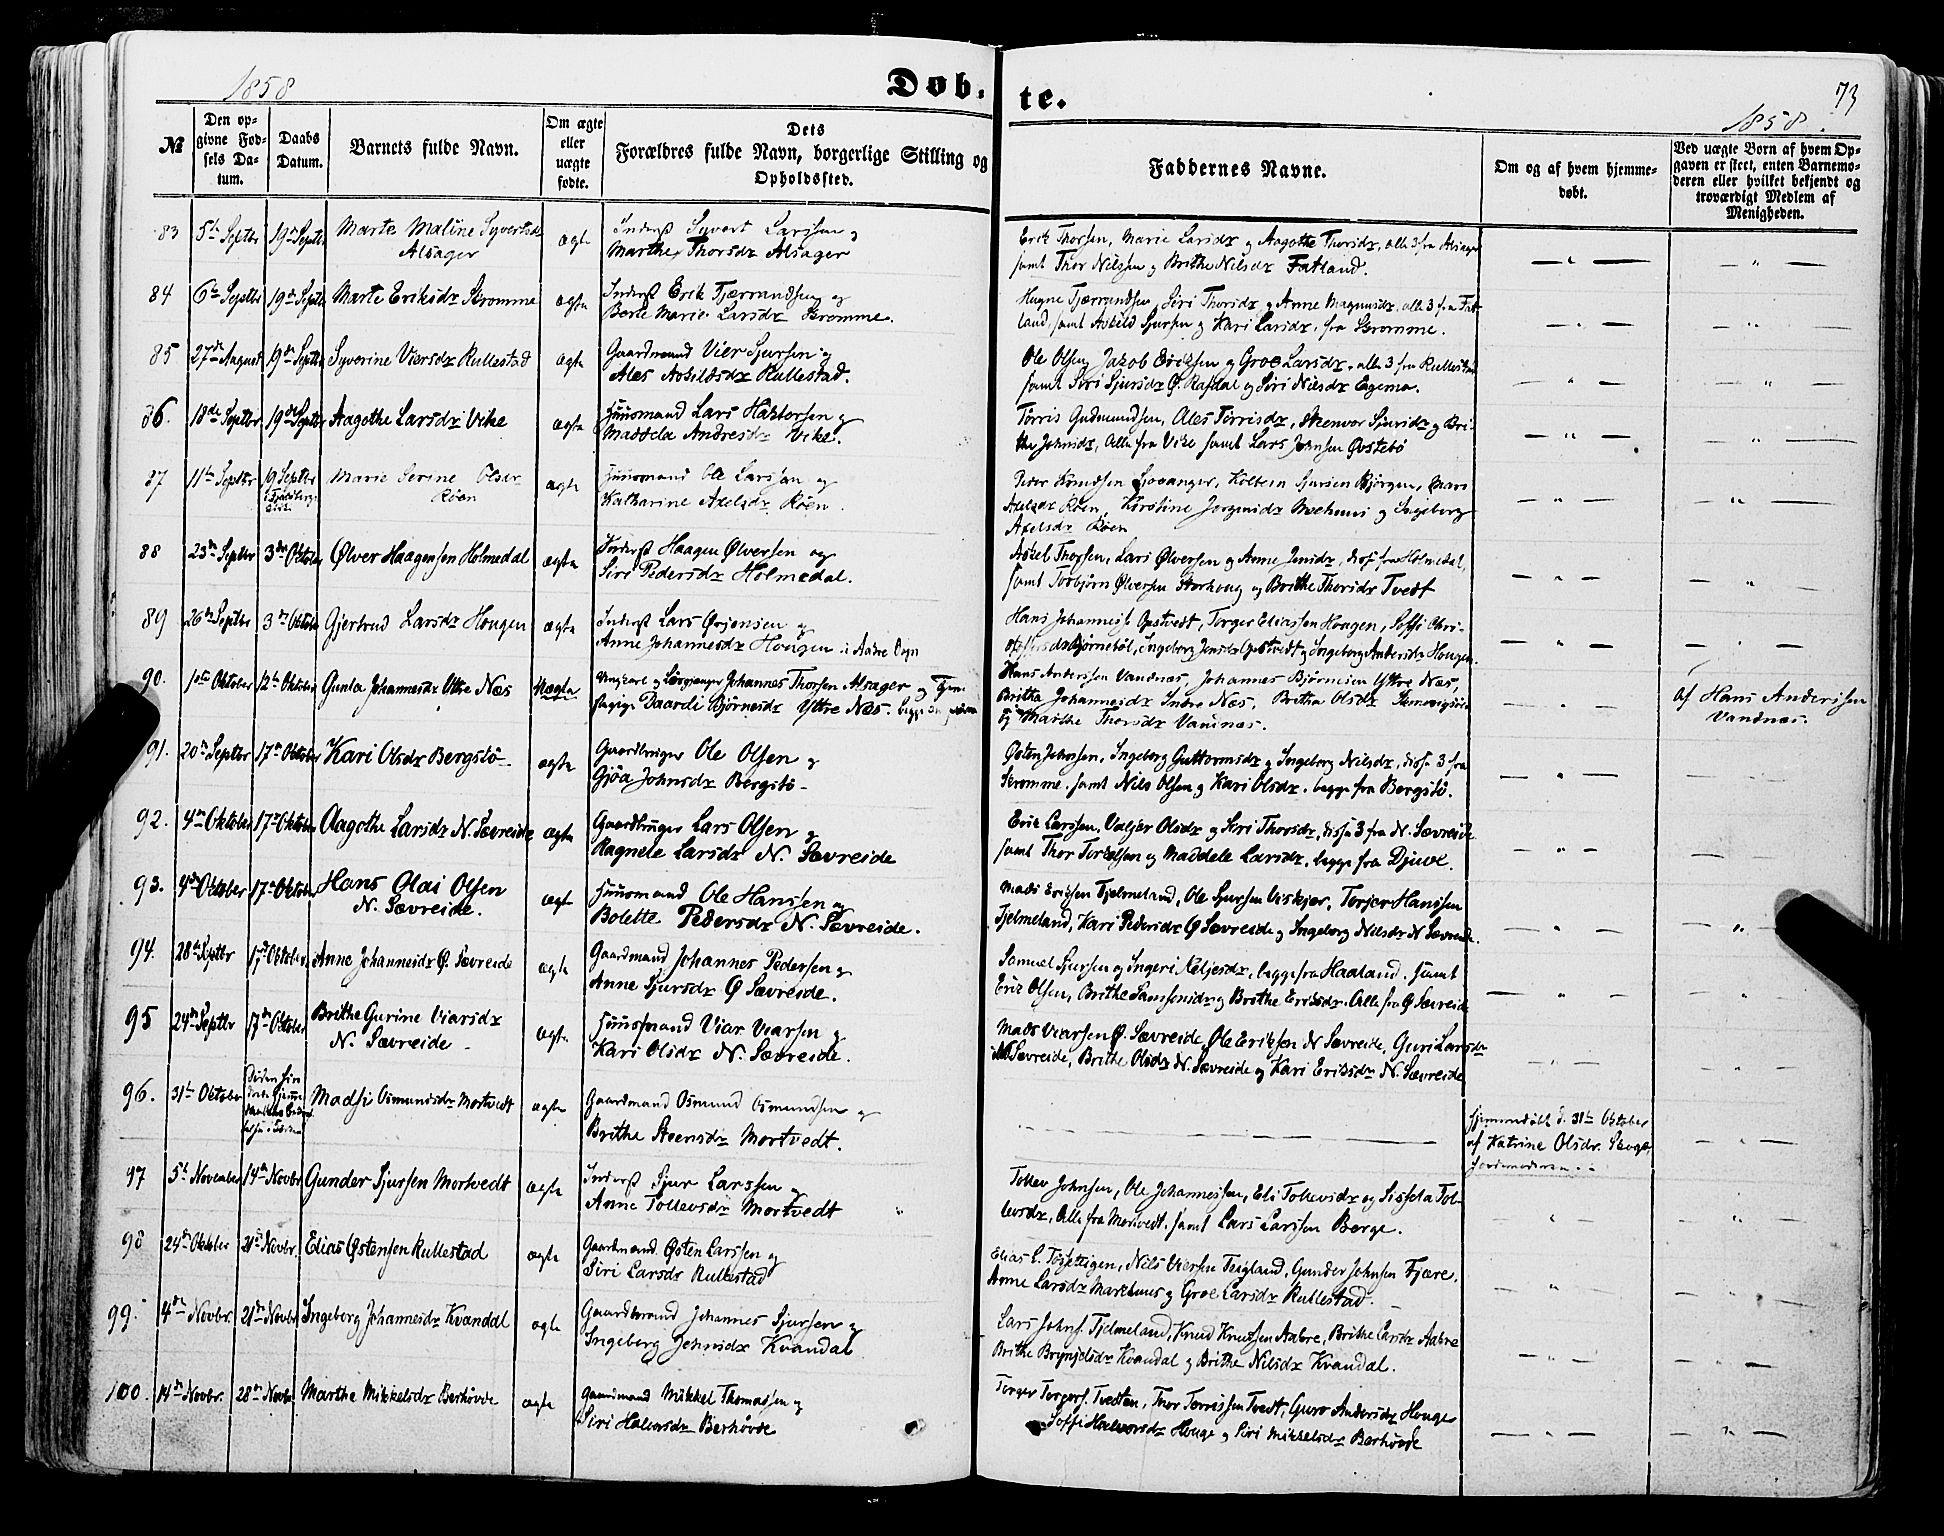 1858
Døb-
te.
73
1858.
№
Den op-
givne Fød-
sels Da-
tum.
Daabs
Datum.
Barnets fulde Navn.
Om ægte
eller
uægte
fødte.
Dets
Forældres fulde Navn, borgerlige Stilling og
Opholdssted.
Faddernes Navne.
Om og af hvem hjemme-
døbt.
Ved uægte Børn af hvem Op-
gaven er skeet, enten Barnemo-
deren eller hvilket bekjendt og
troværdigt Medlem af
Menigheden.
83 5te Septbr 19de Septbr Marte Maline Syvertsdr
Alsager
ægte
Inderst Syvert Larssen og
Marthe Thorsdr Alsager
Erik Thorsen, Marie Larsdr og Aagothe Thorsdr, alle 3 fra Alsager
samt Thor Nilssen og Brithe Nilsdr Fatland.
84 6te Septbr 19de Septbr Marte Eriksdr Skromme ægte
Inderst Erik Tjærandsen og
Berte Marie Larsdr Skromme.
Hugne Tjærandsen, Siri Thorsdr og Anne Magnusdr, alle 3 fra Fat-
land, samt Askild Sjursen og Kari Larsdr, fra Skromme.
85 27de August 19de Septbr Syverine Viersdr Rullestad ægte
Gaardmand Vier Sjursen og
Ales Askildsdr Rullestad.
Ole Olsen, Jakob Eriksen og Groe Larsdr, alle 3 fra Rullestad
samt Siri Sjursdr Ø. Rafdal og Siri Nilsdr Egema.
86. 18de Septbr 19de Septbr Aagothe Larsdr Vike ægte
Huusmand Lars Haktorsen og
Maddela Andresdr Vike.
Tørris Gudmundsen, Ales Tørrisdr, Steenvor Sjursdr og Bri-
the Johnsdr, Alle fra Vike samt Lars Johnsen Østebø
87 11te Septbr 19 Septbr
Marie Serine Olsdr
Røen
ægte
Huusmand Ole Larssen og
Katharine Axelsdr Røen.
Peder Knudsen Sjovanger, Kolbein Sjursen Bjørgen, Mari
Axelsdr Røen, Kirstine Jørginsdr Moehuus og Ingeborg
Axelsdr Røen
88 23de Septbr 3de Oktober Ølver Haagensen Holmedal ægte
Inderst Haagen Ølversen og
Siri Pedersdr Holmedal.
Askel Thorsen, Lars Ølversen og Anne Jensdr, diss. fra Holmedal,
samt Torbjørn Ølversen Storhoug og Brithe Thorsdr Tvedt
89 26de Septbr 3de Oktober Gjertrud Larsdr Hougen ægte
Inderst Lars Ørjensen og
Anne Johannesdr Hougen i Aakre Sogn
Hans Johanness. Opstvedt, Torger Eliassen Hougen, Soffi Chri-
stoffersdr Bjørnebøl, Ingeborg Jensdr Opstvedt og Ingeborg Andersdr Hougen.
90. 10de Oktober 12te Oktober Gunla Johannesdr Ytre Næs Uægte
Ungkarl og Løsgjænger Johannes Thorsen Alsager og
Baardi Bjørnesdr Ytre Næs.
Hans Anderssen Vandnæs, Johannes Bjørnsien Yttre Næs,
Britta Johannesdr Indre Næs, Britha Olsdr
og Marthe Thorsdr Vandnæs.
af Hans Anderssen
Vandnæs.
91. 20de Septbr 17de Oktober Kari Olsdr Bergstø ægte
Gaardbruger Ole Olsen og
Gjøa Johnsdr Bergstø
Østen Johnsen, Ingeborg Guttormsdr og Ingeborg Nilsdr, disse 3 fra
Skromme. samt Nils Olsen og Kari Olsdr. begge fra Bergstø.
92. 4de Oktober 17de Oktober Aagothe Larsdr N. Sævreide ægte
Gaardbruger Lars Olsen og
Ragnele Larsdr N. Sævreide
Erik Larssen, Valjer Olsdr og Siri Thorsdr, disse 3 fra N. Sævreide
samt Thor Torkelsen og Maddele Larsdr, begge fra Djuve.
93. 4de Oktober 17de Oktober Hans Olai Olsen
N. Sævreide.
ægte
Huusmand Ole Hanssen og
Bolette Pedersdr N. Sævreide.
Mads Erikssen Tjelmeland, Ole Sjursen Viskjær, Torjer Hanssen
Tjelmeland, Kari Pedersdr Ø Sævreide og Ingeborg Nilsdr N Sævreide.
94. 28de Septbr 17de Oktober Anne Johannesdr Ø. Sævreide ægte
Gaardmand Johannes Pedersen og
Anne Sjursdr Ø Sævreide.
Samuel Sjursen og Ingeri Keljesdr, begge fra Haaland. samt
Erik Olsen, Brithe Samsonsdr og Brithe Eriksdr. Alle fra Ø Sævreide
95 24de Septbr 17de Oktober Brithe Gurine Viarsdr
N. Sævreide
ægte
Huusmand Viar Viarsen og
Kari Olsdr N. Sævreide.
Mads Viarsen Ø. Sævreide, Ole Eriksen N Sævreide, Guri Larsdr
N Sævreide, Brithe Olsdr N. Sævreide og Kari Eriksdr N. Sævreide
96. 31te Oktober
Madsi Osmundsdr Mortvedt ægte
Gaardmand Osmund Osmundsen og
Brithe Steensdr Mortvedt.
Hjemmedøbt d. 31te Oktober
af Katrine Olsdr.
Jordemoderen
97 5te November 14de Novbr. Gunder Sjursen Mortvedt ægte
Inderst Sjur Larssen og
Anne Tollevsdr Mortvedt
Tollev Johnsen, Ole Johannessen, Eli Tollevsdr og Sissela Tol-
levsdr, Alle fra Mortvedt. samt Lars Larssen Berge.
98 24de Oktober 21de Novbr. Elias Østensen Rullestad ægte
Gaardmand Østen Larssen og
Siri Larsdr Rullestad
Elias L. Tøsettigen, Nils Viersen Teigland, Gunder Johnsen Fjære,
Anne Larsdr Markhuus og Groe Larsdr Rullestad.
99. 4de Novbr. 21de Novbr Ingeborg Johannesdr Kvandal ægte
Gaardbrand Johannes Sjursen og
Ingeborg Johnsdr Kvandal
Lars Johns. Tjelmeland, Knud Knutsen Aakre, Brithe Larsdr Aakre
Brithe Brynjelsdr Kvandal og Brithe Nilsdr Kvandal.
100. 14de Novbr. 28de Novbr Marthe Mikkelsdr Berhøvde ægte
Gaardmand Mikkel Thomassen og
Siri Halvorsdr Berhøvde
Torger Torgers. Tvedten, Thor Tørrissen Tvedt, Guro Andersdr Houge
Soffi Halvorsdr Houge og Siri Mikkelsdr Berhøvde